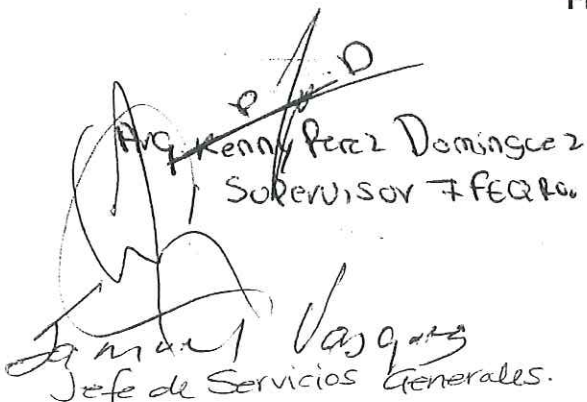 P. K. D
Arq. Kenny Perez Dominguez
Supervisor IFEQROO
Samuel Vasquez
Jefe de Servicios Generales.